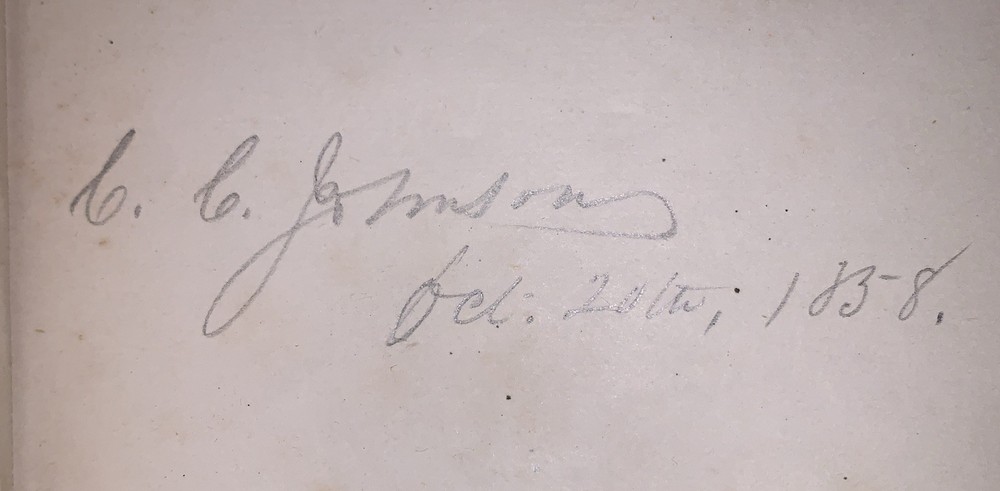 C. C. Johnson
Oct. 20th, 1858.